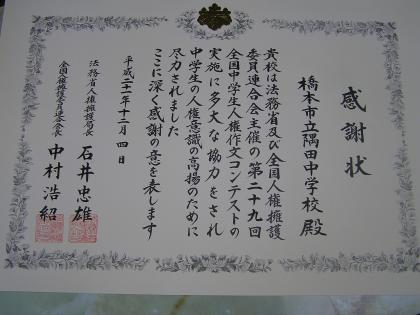 感謝状
橋本市立隅田中学校殿
貴校は法務省及び全国人権擁護
委員連合会主催の第二十九回
全国中学生人権作文コンテストの
実施に多大な協力をされ
中学生の人権意識の高揚のために
尽力されました
ここに深く感謝の意を表します
平成二十一年十二月四日
法務省人権擁護局長 石井忠雄
全国人権擁護委員連合会長 中村浩紹